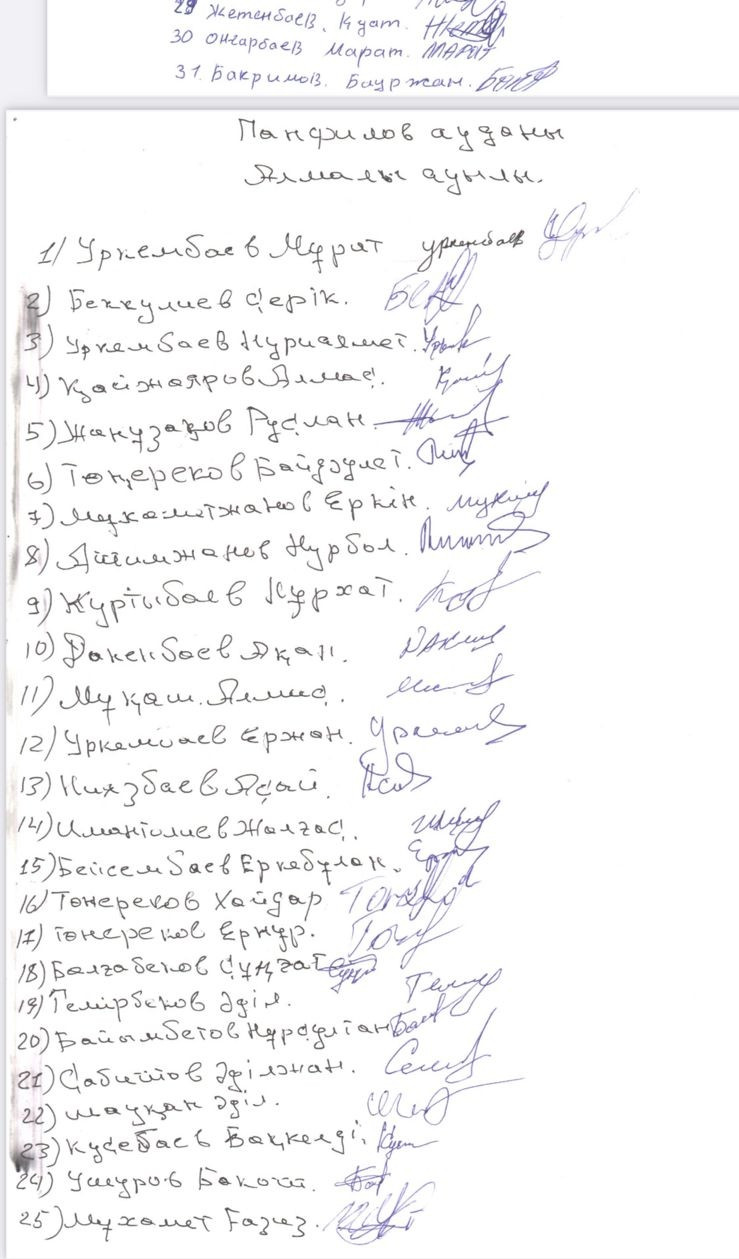 29 Жетенбаев. Қуат.
30 Онгарбаев Марат. МАРАТ
31. Бакримов. Бауржан.
Панфилов ауданы
Алмалы ауылы.
1) Уркембаев Мұрат уркенбаев
2) Беккулиев Серік.
3) Уркембаев Нурмахмет.
4) Қайжапаров Алмас.
5) Жанұзақов Руслан.
6) Төңереков Байдәулет.
7) Мухаметжанов Еркін.
8) Айтимжанов Нурбол.
9) Журтыбаев Нұрхат.
10) Дакенбаев Ақан.
11) Мұқаш. Алмас.
12) Уркембаев Ержан.
13) Ниязбаев Асай.
14) Имангалиев Жалғас.
15) Бейсембаев Еркебұлан.
16) Төнереков Хайдар
17) Төнереков Ернұр.
18) Балғабеков Сұңғат
19) Темірбеков Әділ.
20) Байымбетов Нұрсұлтан
21) Сабитов Әділжан.
22) Мауқан Әділ.
23) Кусебаев Бақкелді.
24) Ушуров
25) Мұхамет Ғазиз.